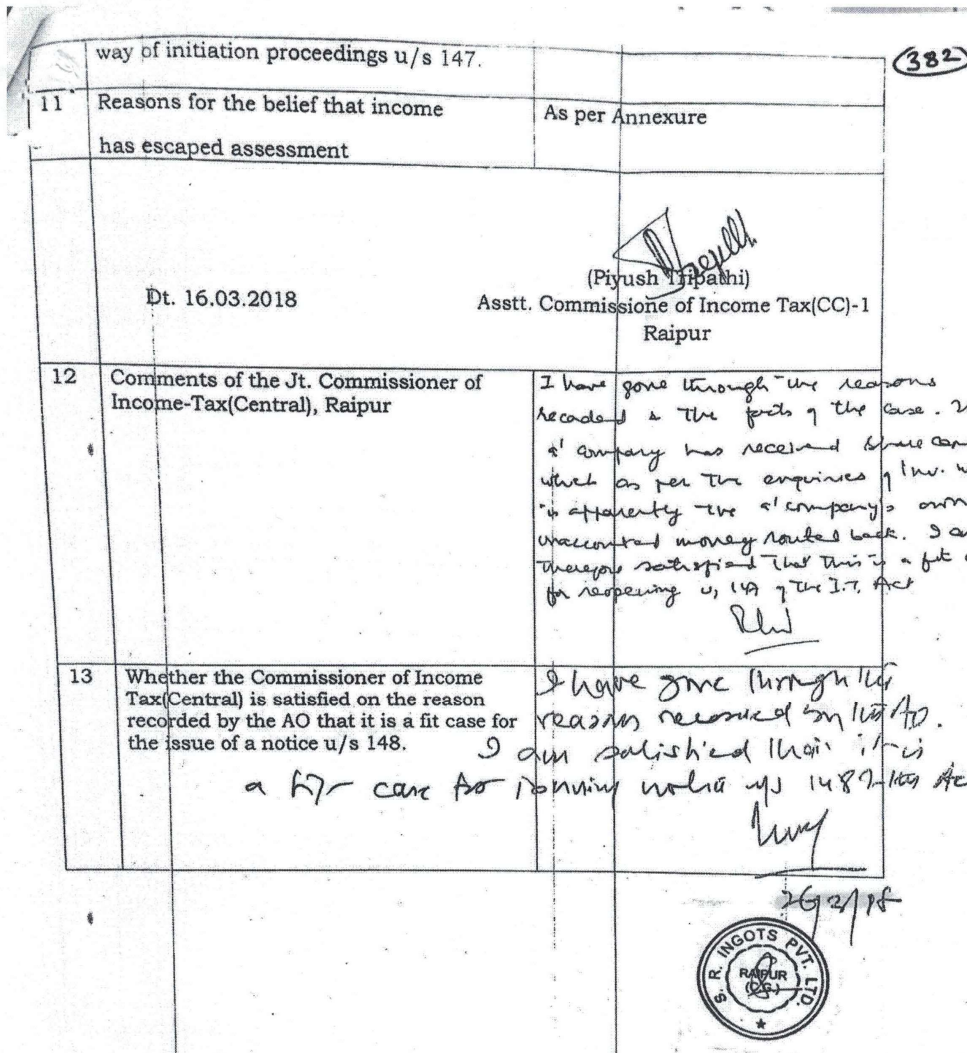 382
way of initiation proceedings u/s 147.
11 Reasons for the belief that income As per Annexure
has escaped assessment
(Piyush Tripathi)
Dt. 16.03.2018 Asstt. Commissione of Income Tax(CC)-1
Raipur
12 Comments of the Jt. Commissioner of
Income-Tax(Central), Raipur
I have gone through the reasons
recorded & the facts of the case.
a' company has received share
which as per the enquiries of Inv.
is apparently the a' company's own
unaccounted money routed back. I
therefore satisfied that this is a fit
for reopening u/s 147 of the I.T. Act
13 Whether the Commissioner of Income
Tax(Central) is satisfied on the reason
recorded by the AO that it is a fit case for
the issue of a notice u/s 148.
I have gone through the
reasons recorded by the AO.
I am satisfied that it is
a fit case for issuing notice u/s 148 of the
S. R. INGOTS PVT. LTD.
RAIPUR
(C.G.)